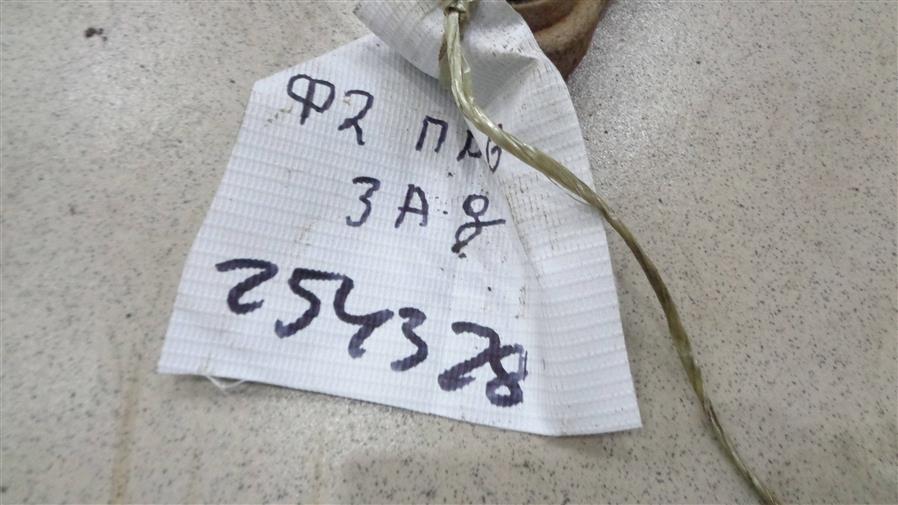 Ф2 ПРВ
ЗАд
254328